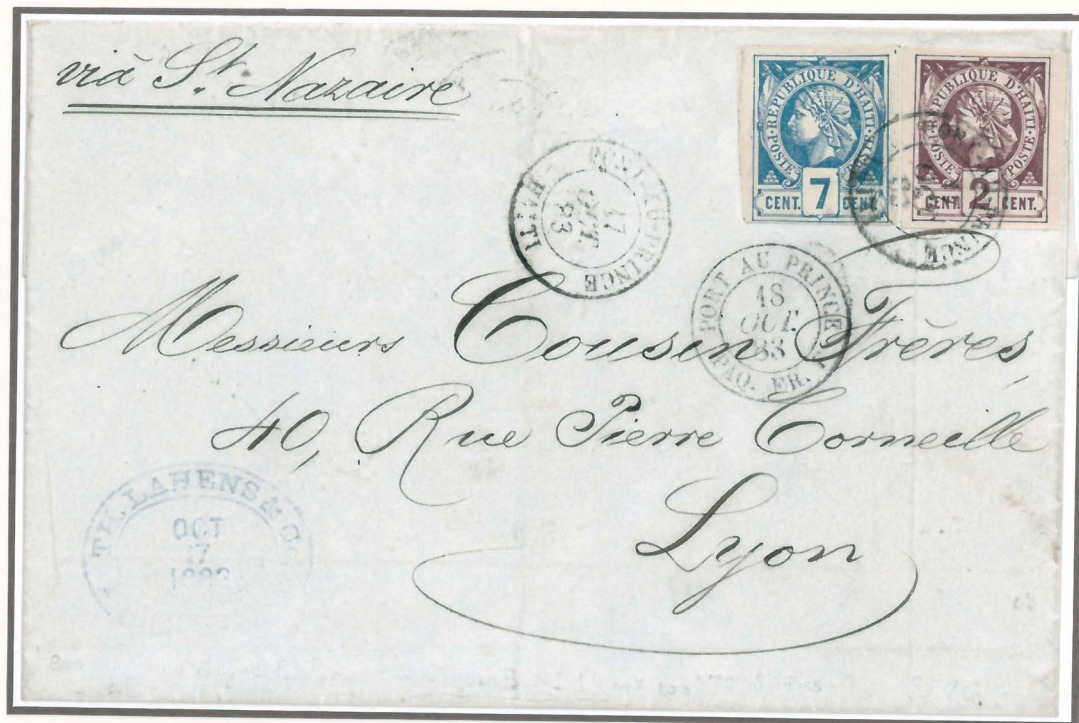 viâ St. Nazaire
REPUBLIQUE D'HAITI
POSTE POSTE
CENT. 7 CENT.
REPUBLIQUE D'HAITI
POSTE POSTE
CENT. 2 CENT.
PORT-AU-PRINCE
17
OCT.
83
HAITI
PORT AU PRINCE
18
OCT.
83
PAQ. FR.
PRINCE
Messieurs Cousin Frères,
40, Rue Pierre Corneille
Lyon
LAHENS & Co
OCT
17